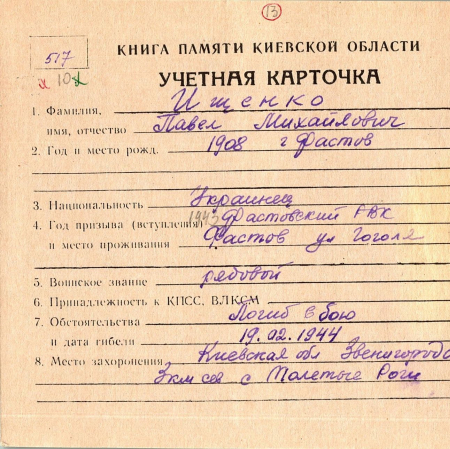 13
517
КНИГА ПАМЯТИ КИЕВСКОЙ ОБЛАСТИ
УЧЕТНАЯ КАРТОЧКА
1. Фамилия, Ищенко
имя, отчество Павел Михайлович
2. Год и место рожд. 1908 г Фастов
3. Национальность Украинец
4. Год призыва (вступления) 1943 Фастовский РВК
и место проживания Фастов ул Гоголя
5. Воинское звание рядовой
6. Принадлежность к КПСС, ВЛКСМ
7. Обстоятельства Погиб в бою
и дата гибели 19.02.1944
8. Место захоронения, Киевская обл Звенигородс
3км сев с Толстые Роги